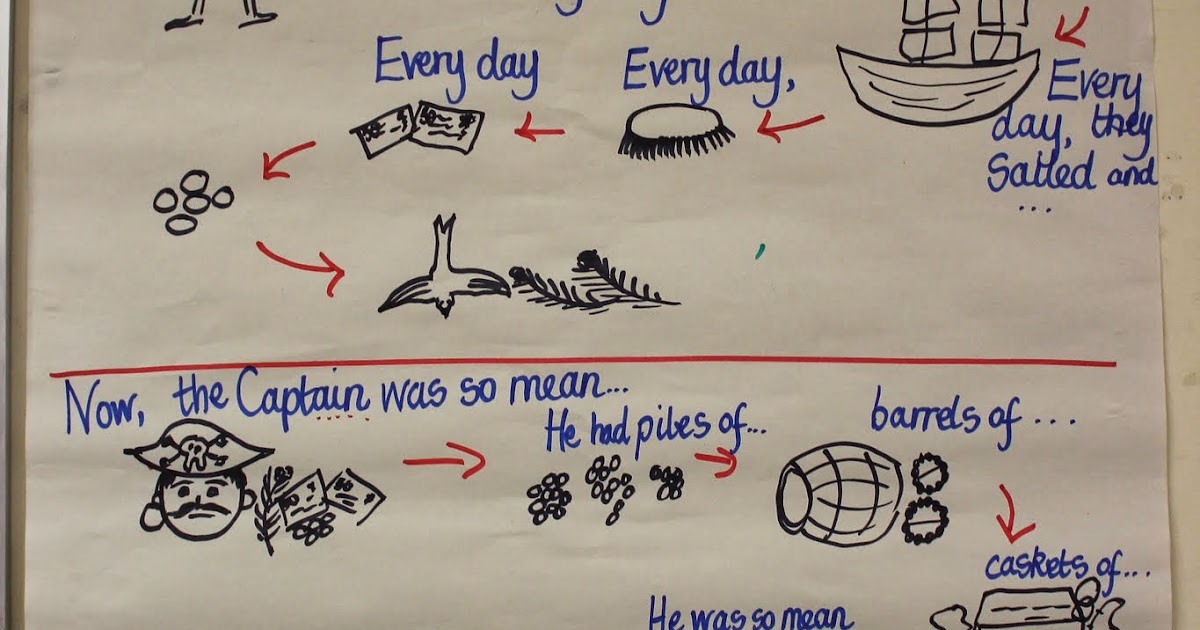 Every day
Every day,
Every
day, they
Salled and
...
Now, the Captain was so mean...
He had piles of...
barrels of ....
caskets of...
He was so mean